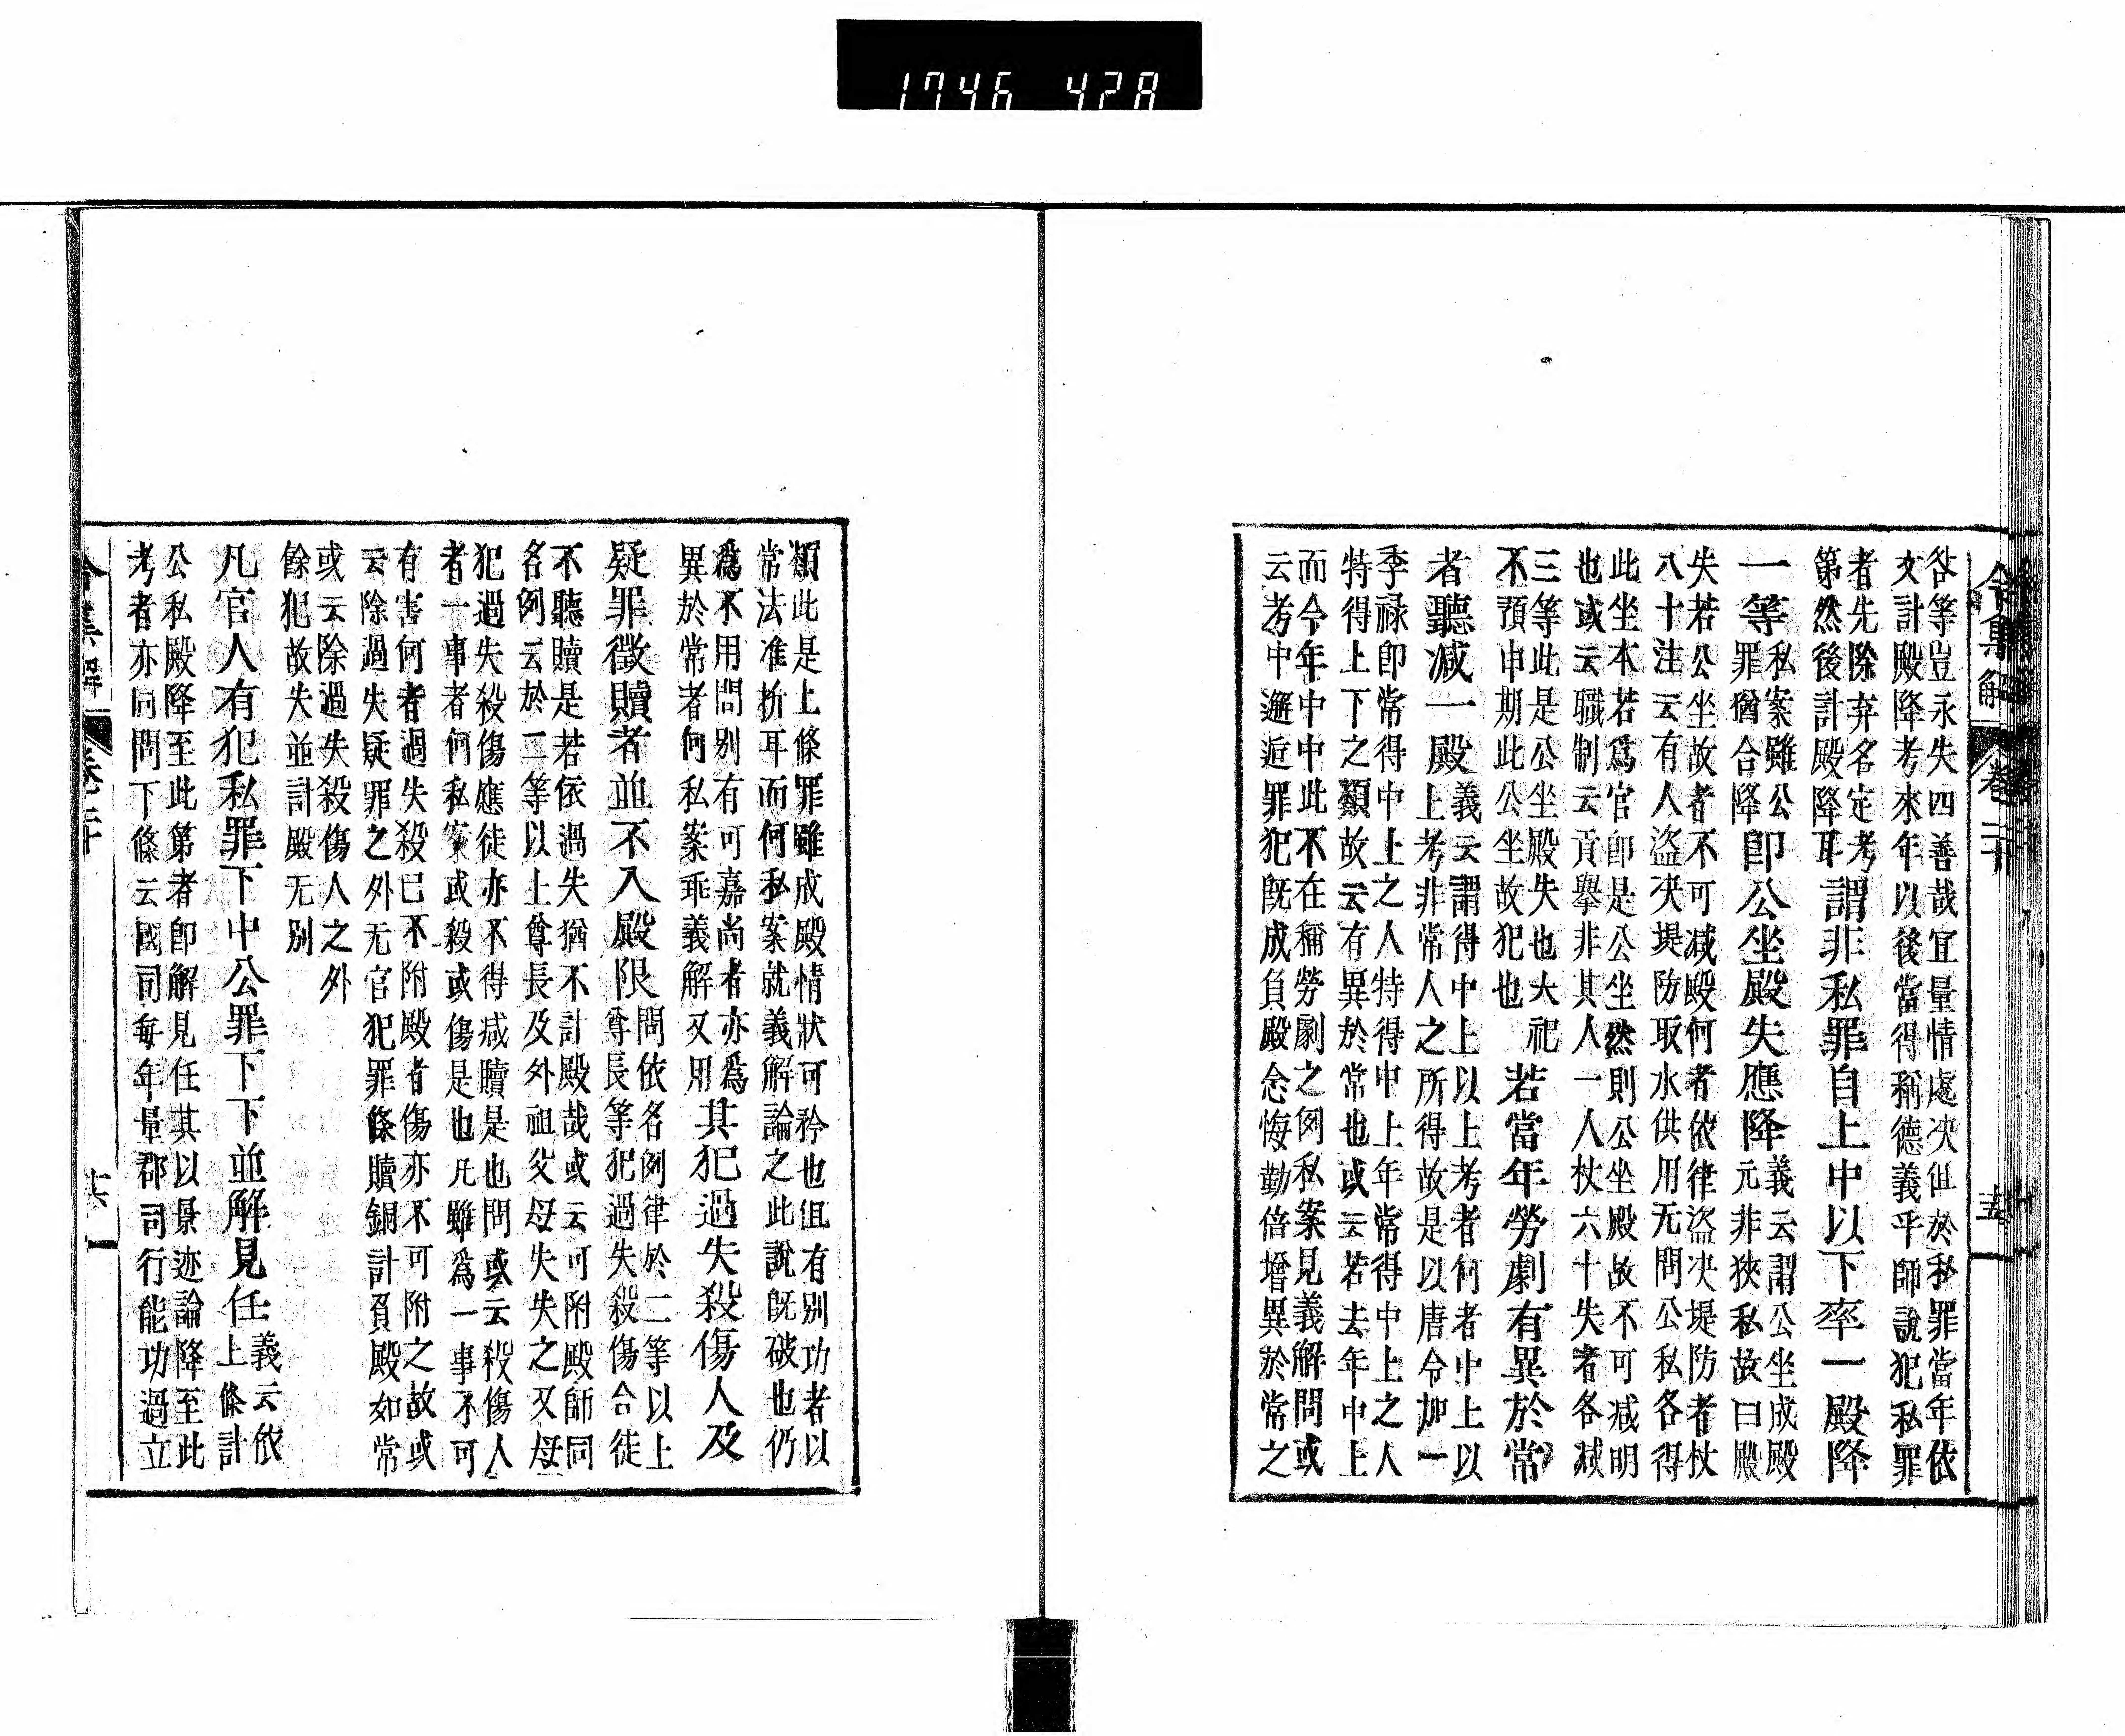 1746 428
令集解 卷二十
咎等豈永失四善哉冝量情處决但於私罪當年依
文計殿降考來年以後當得稱德義乎師說犯私罪
者先除弃名定考
第然後計殿降耳
謂非私罪自上中以下率一殿降
一等
私案雖公
罪猶合降
即公坐殿失應降
義云謂公坐成殿
元非狹私故曰殿
失若公坐故者不可减殿何者依律盜决堤防者杖
八十注云有人盜决堤防取水供用无問公私各得
此坐本若爲官即是公坐然則公坐殿故不可减明
也或云職制云貢擧非其人一人杖六十失者各减
三等此是公坐殿失也大祀
不預申期此公坐故犯也
若當年勞劇有異於常
者聽减一殿
義云謂得中上以上考者何者中上以
上考非常人之所得故是以唐令加一
季禄即常得中上之人特得中上年常得中上之人
特得上下之類故云有異於常也或云若去年中上
而今年中中此不在稱勞劇之例私案見義解問或
云考中邂逅罪犯旣成負殿念悔勤倍增異於常之
類此是上條罪雖成殿情狀可矜也但有別功者以
常法准折耳而何私案就義解論之此說旣破也仍
爲不用問別有可嘉尚者亦爲
異於常者何私案乖義解又用
其犯過失殺傷人及
疑罪徵贖者並不入殿限
問依名例律於二等以上
尊長等犯過失殺傷合徒
不聽贖是若依過失猶不計殿哉或云可附殿師同
名例云於二等以上尊長及外祖父母失失之又母
犯過失殺傷應徒亦不得减贖是也問或云殺傷人
者一事者何私案或殺或傷是也凡雖爲一事不可
有害何者過失殺已不附殿者傷亦不可附之故或
云除過失疑罪之外无官犯罪條贖銅計負殿如常
或云除過失殺傷人之外
餘犯故失並計殿无別
凡官人有犯私罪下中公罪下下並解見任
義云依
上條計
公私殿降至此第者即解見任其以景迹論降至此
考者亦同問下條云國司每年量郡司行能功過立